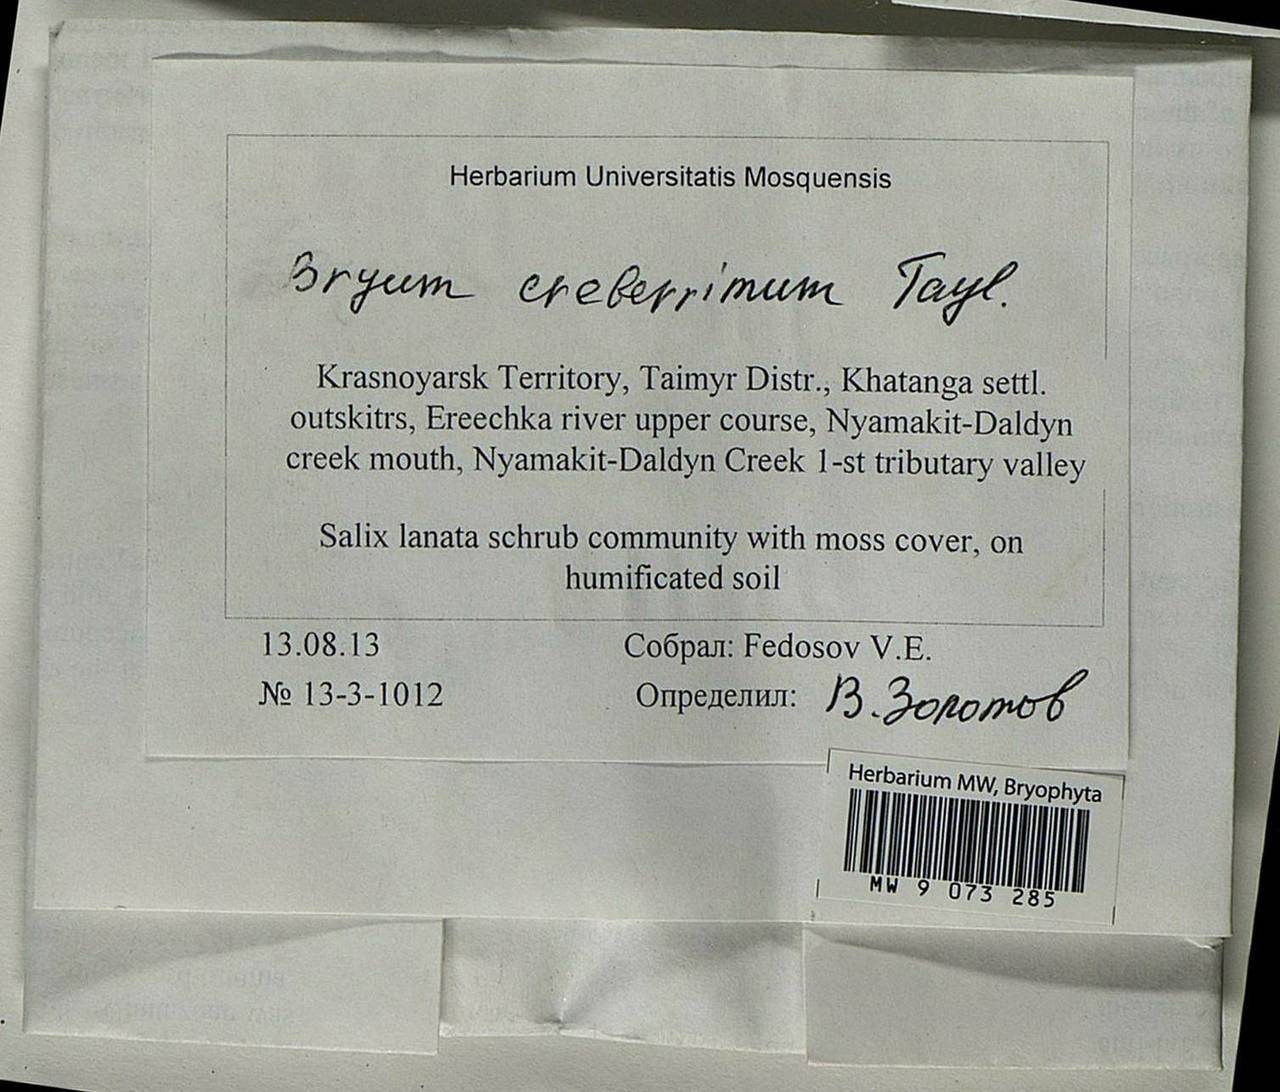 Herbarium Universitatis Mosquensis
Bryum creberrimum Tayl.
Krasnoyarsk Territory, Taimyr Distr., Khatanga settl.
outskitrs, Ereechka river upper course, Nyamakit-Daldyn
creek mouth, Nyamakit-Daldyn Creek 1-st tributary valley
Salix lanata schrub community with moss cover, on
humificated soil
13.08.13
Собрал: Fedosov V.E.
№ 13-3-1012
Определил: В. Золотов
Herbarium MW, Bryophyta
MW 9 073 285